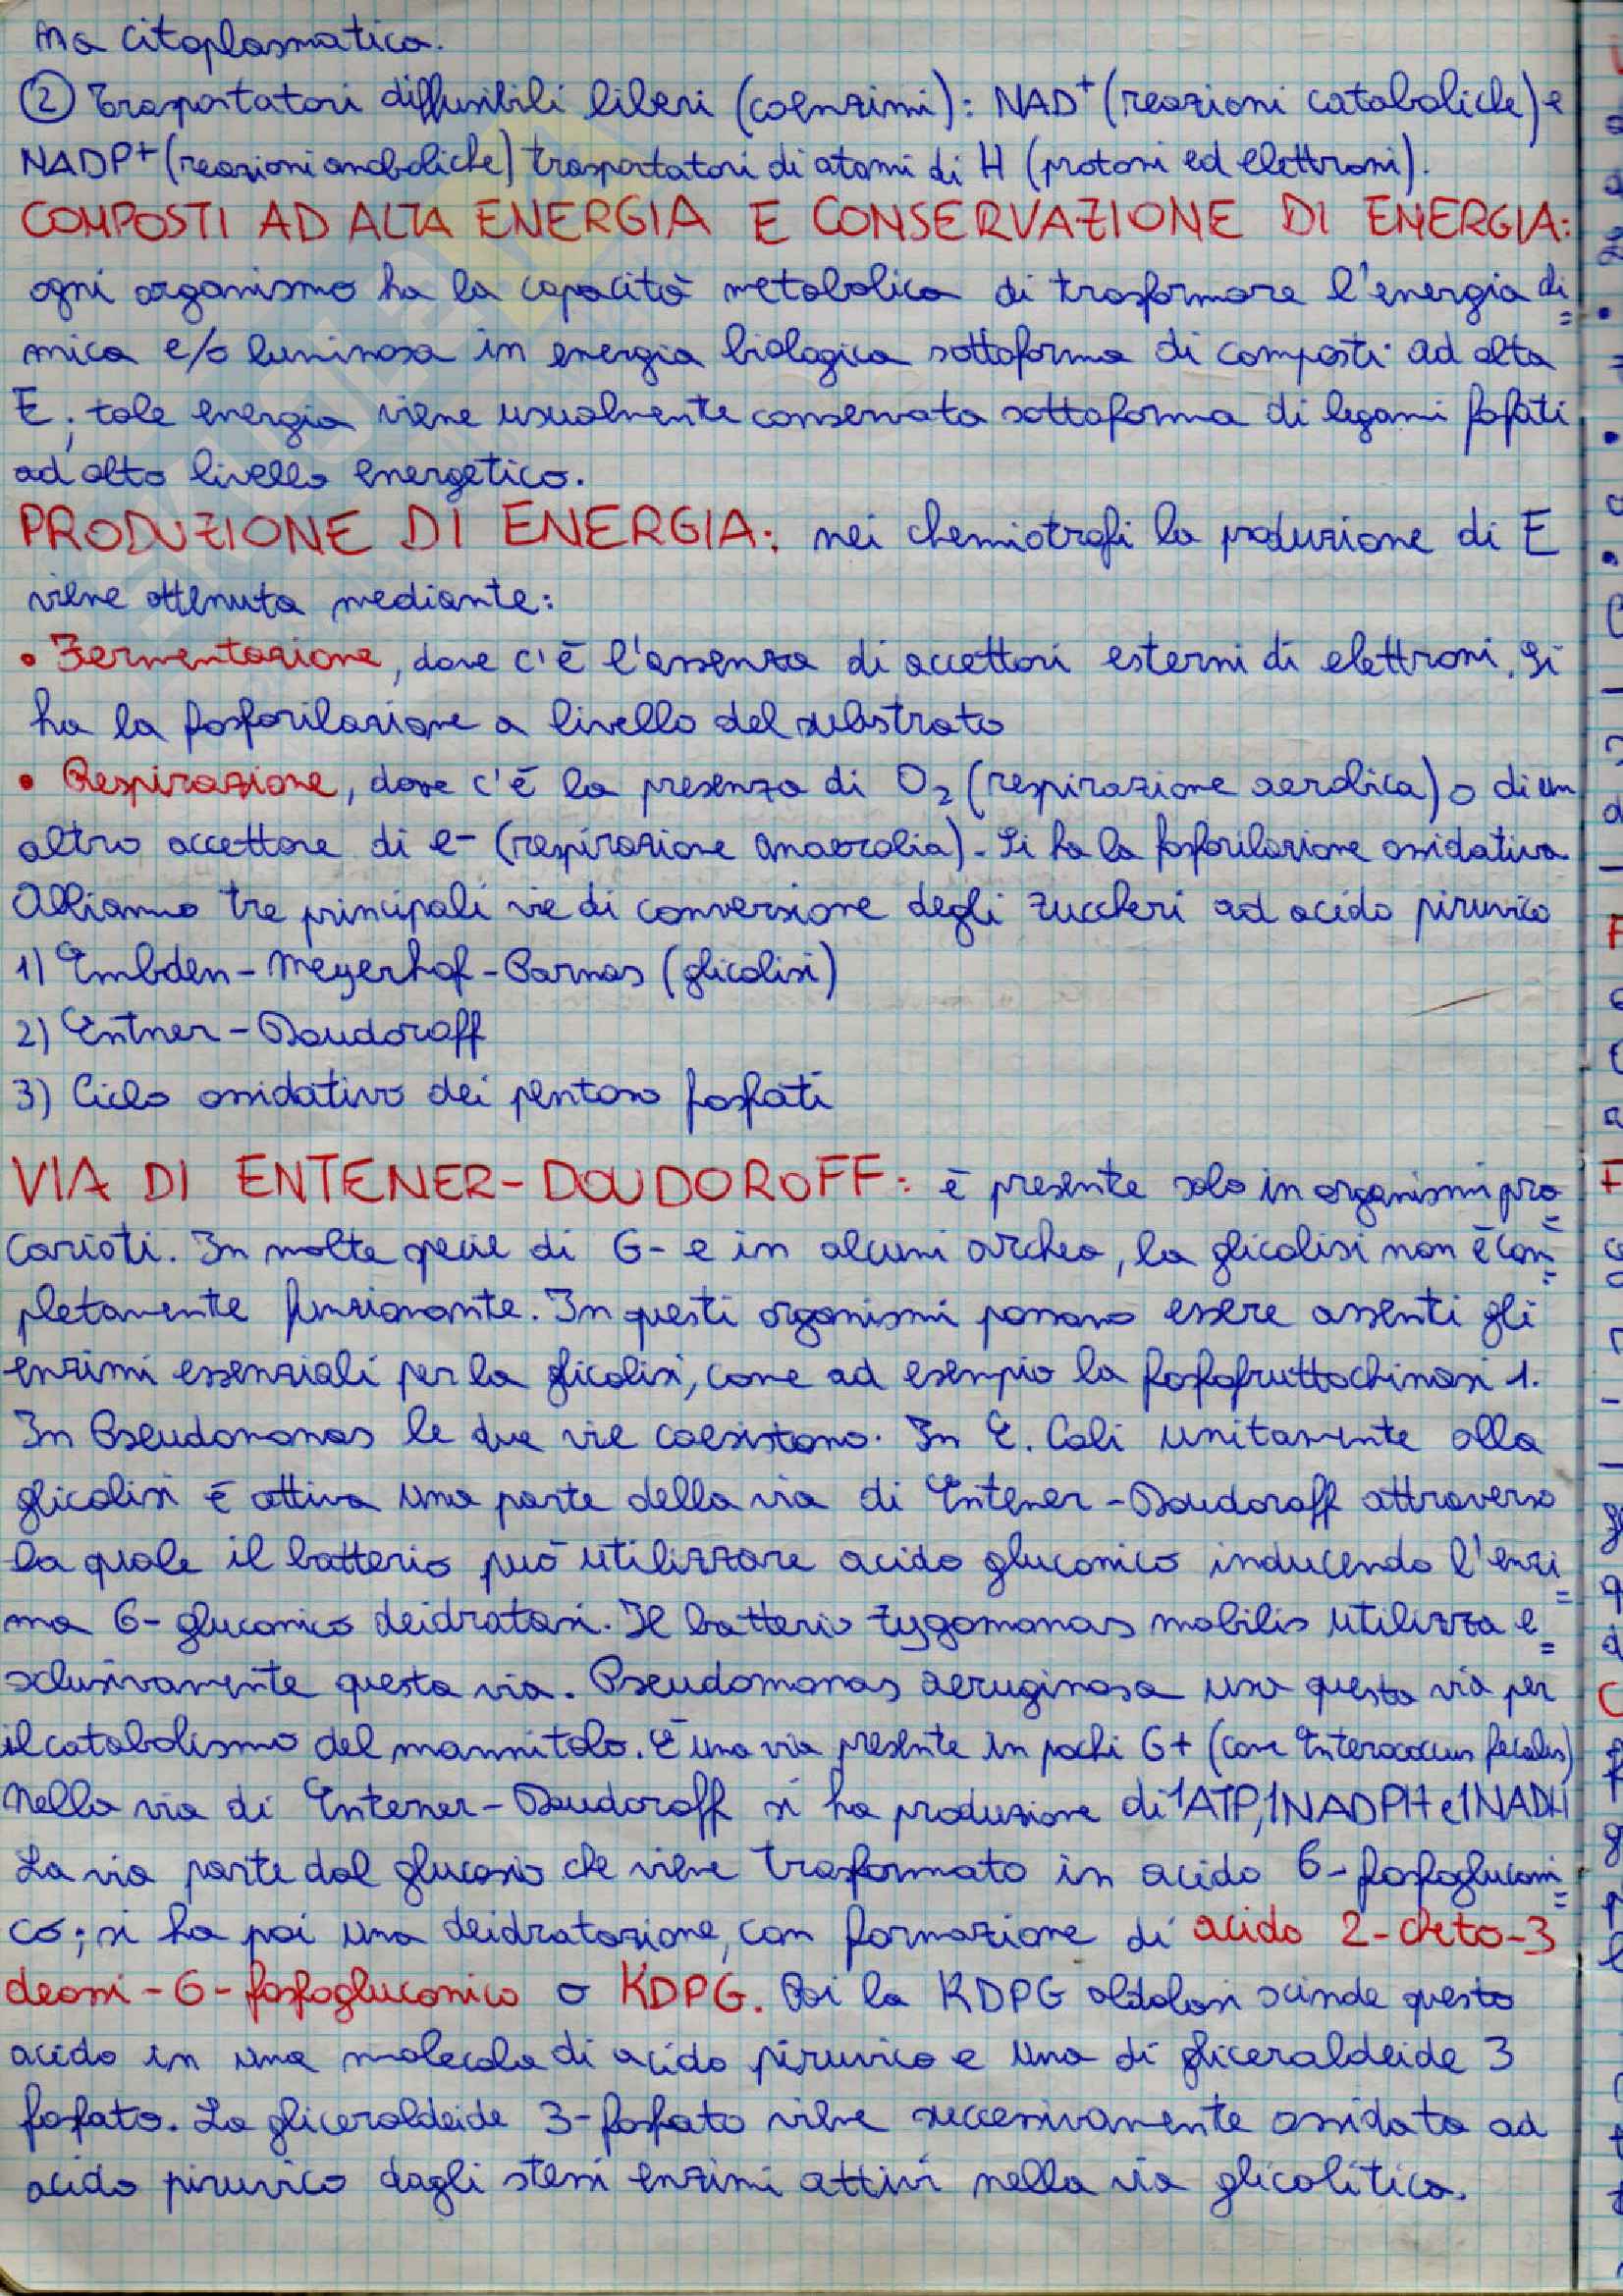 ma citoplasmatica.
② Trasportatori diffusibili liberi (coenzimi): NAD⁺ (reazioni cataboliche) e
NADP+ (reazioni anaboliche) trasportatori di atomi di H (protoni ed elettroni).
COMPOSTI AD ALTA ENERGIA E CONSERVAZIONE DI ENERGIA:
ogni organismo ha la capacità metabolica di trasformare l'energia di=
mica e/o luminosa in energia biologica sottoforma di composti ad alta
E; tale energia viene usualmente conservata sottoforma di legami fofati
ad alto livello energetico.
PRODUZIONE DI ENERGIA: nei chemiotrofi la produzione di E
viene ottenuta mediante:
• Fermentazione, dove c'è l'assenza di accettori esterni di elettroni. Si
ha la fosforilazione a livello del substrato
• Respirazione, dove c'è la presenza di O₂ (respirazione aerobica) o di un
altro accettore di e- (respirazione anaerobia). Si ha la fosforilazione ossidativa.
Abbiamo tre principali vie di conversione degli zuccheri ad acido piruvico
1) Embden-Meyerhof-Parnas (glicolisi)
2) Entner-Doudoroff
3) Ciclo ossidativo dei pentoso fosfati
VIA DI ENTENER-DOUDOROFF: è presente solo in organismi pro=
carioti. In molte specie di G- e in alcuni archea, la glicolisi non è com=
pletamente funzionante. In questi organismi possono essere assenti gli
enzimi essenziali per la glicolisi, come ad esempio la fosfofruttochinasi 1.
In Pseudomonas le due vie coesistono. In E. Coli unitamente alla
glicolisi è attiva una parte della via di Entener-Doudoroff attraverso
la quale il batterio può utilizzare acido gluconico inducendo l'enzi=
ma 6-gluconico deidratasi. Il batterio zygomonas mobilis utilizza e=
sclusivamente questa via. Pseudomonas aeruginosa usa questa via per
il catabolismo del mannitolo. È una via presente in pochi G+ (come Enterococcus fecales)
Nella via di Entener-Doudoroff si ha produzione di 1ATP, 1NADPH e 1NADH
La via parte dal glucosio che viene trasformato in acido 6-fosfogluconi=
co; si ha poi una deidratazione, con formazione di acido 2-cheto-3
deossi-6-fosfogluconico o KDPG. Poi la KDPG aldolasi scinde questo
acido in una molecola di acido piruvico e una di gliceraldeide 3
fosfato. La gliceraldeide 3-fosfato viene successivamente ossidata ad
acido piruvico dagli stessi enzimi attivi nella via glicolitica.